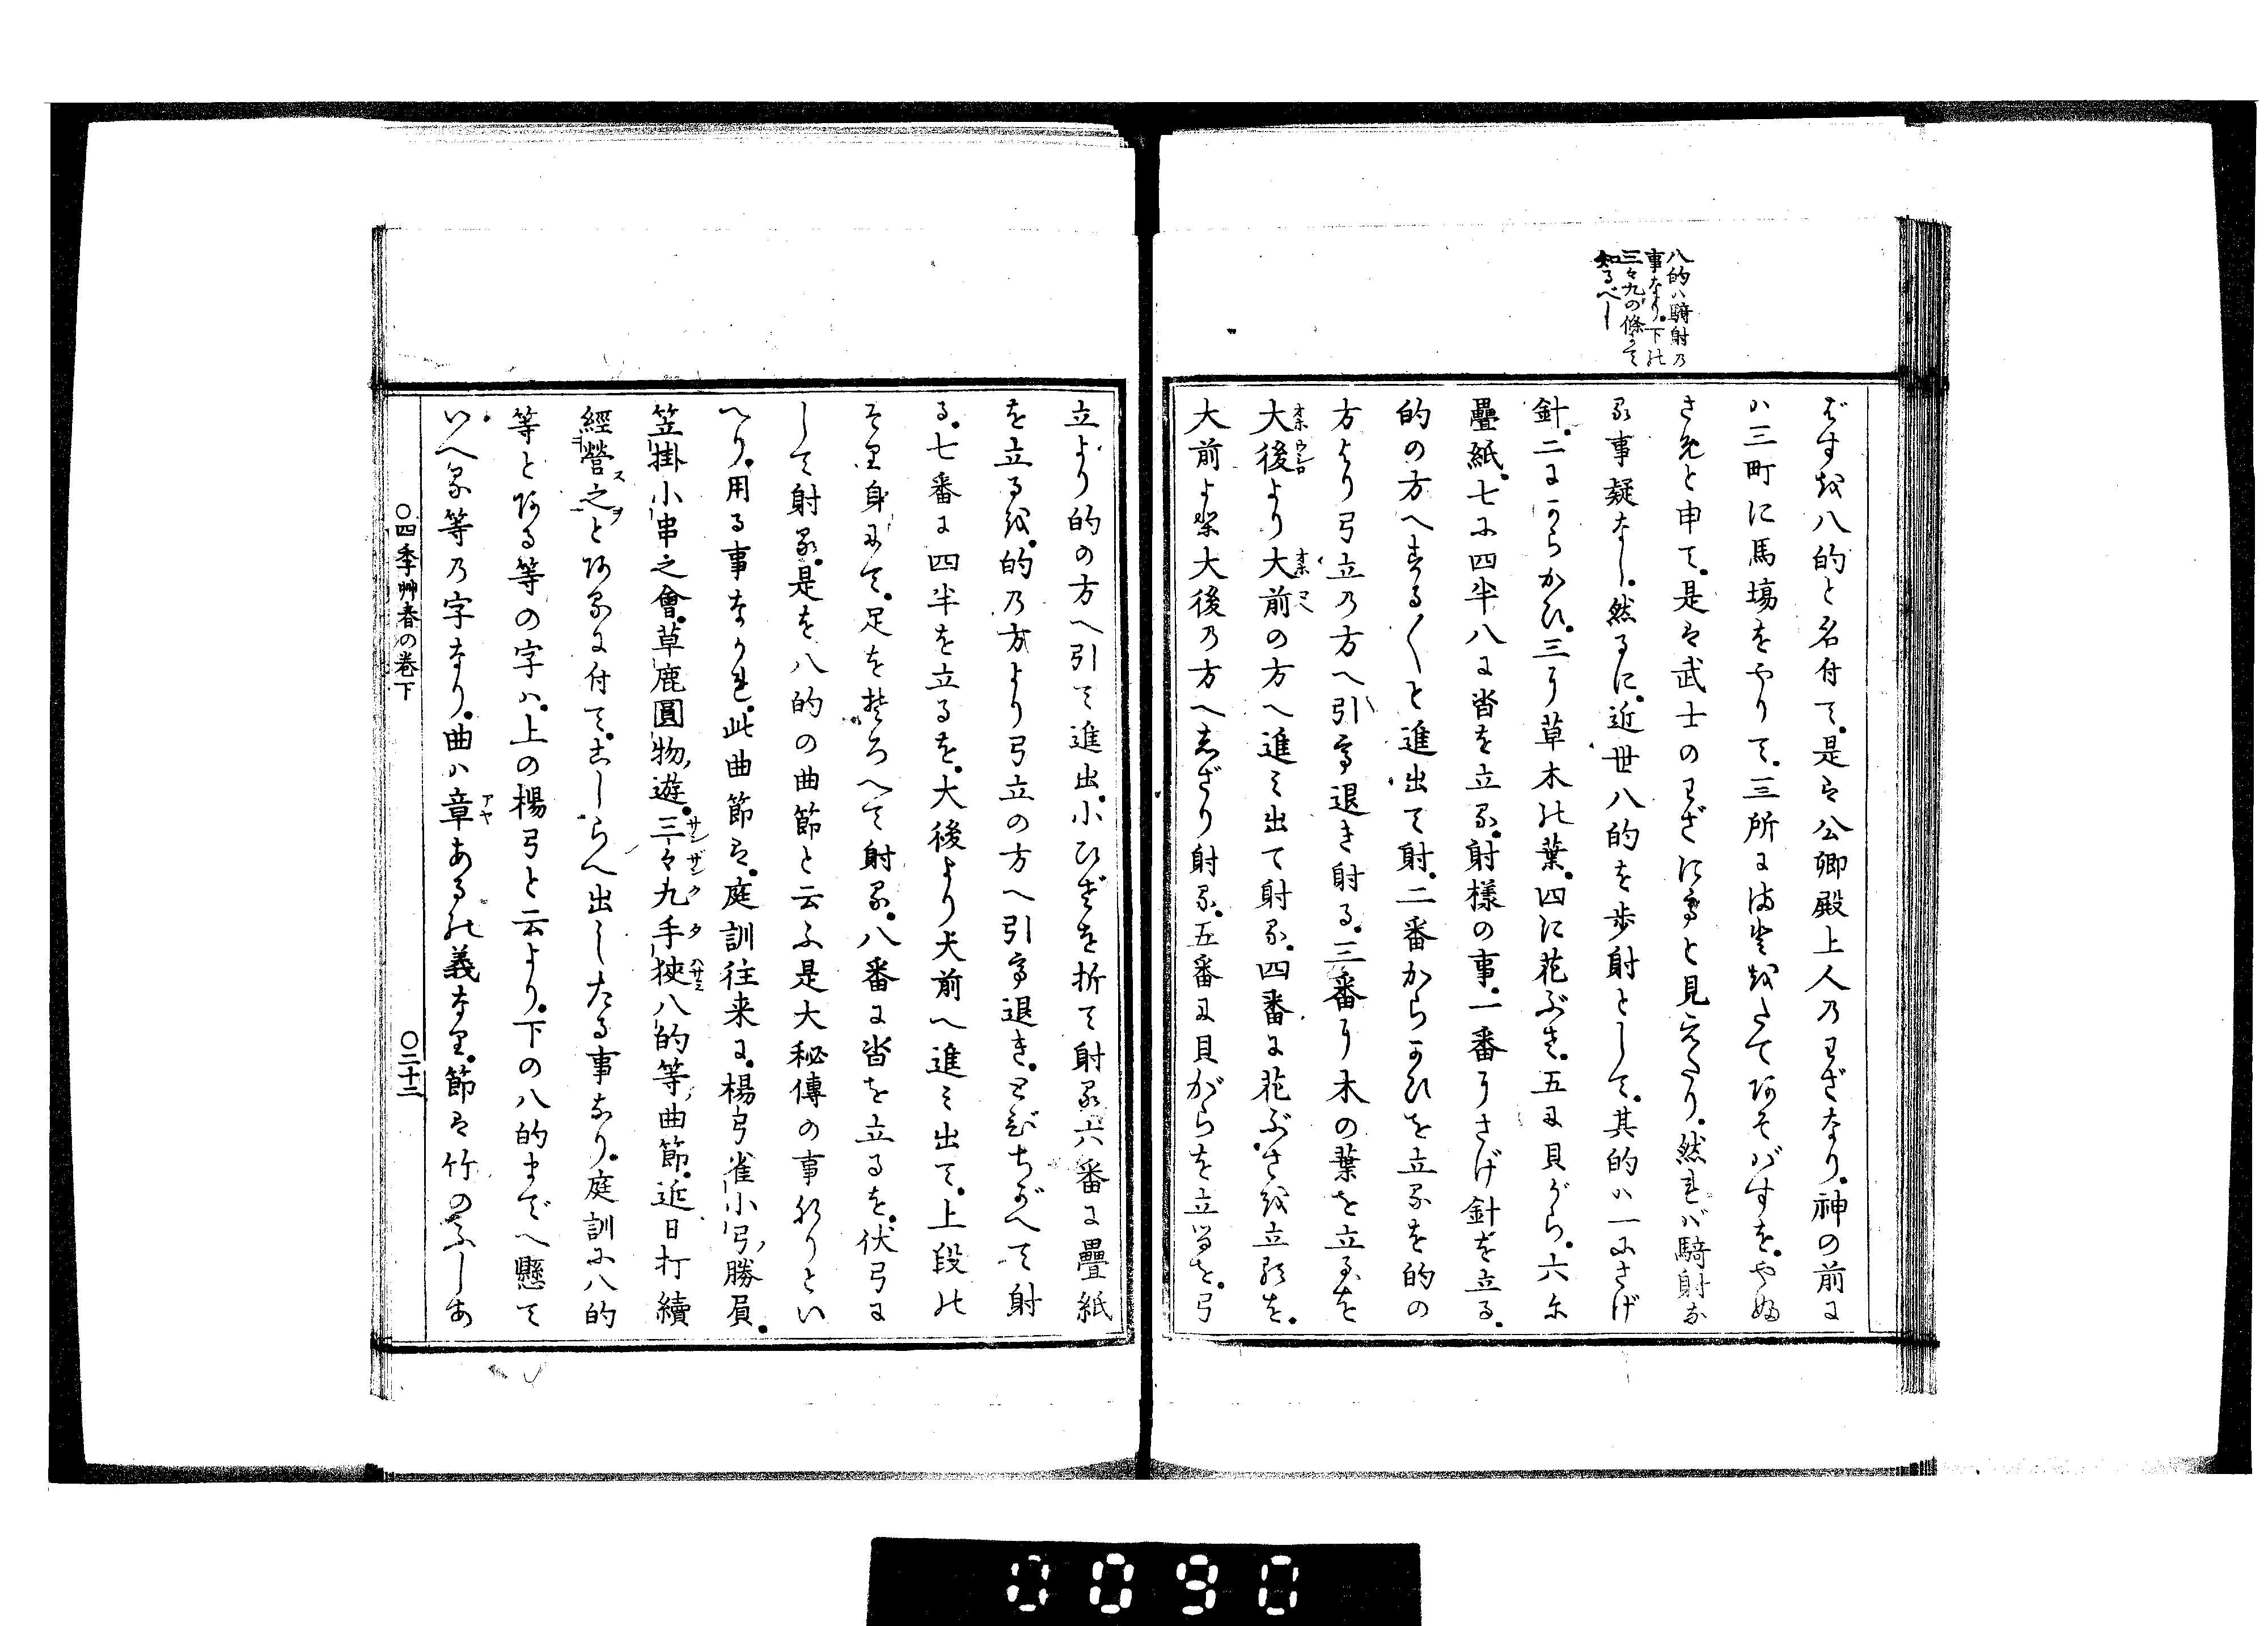 八的ハ騎射乃
事なり。下の
三々九の條にて
知るべし
ばすを八的と名付て。是は公卿殿上人乃わざなり。神の前に
ハ三町に馬場をやりて。三所にまとをたてあそバすを。やぶ
さめと申て。是は武士のわざに(て)と見えたり。然れバ騎射な
る事疑なし。然るに。近世八的を歩射として。其的ハ一にさげ
針。二にからかひ。三に草木の葉。四に花ぶさ。五に貝がら。六に
疊紙。七に四半八に沓を立る。射様の事。一番にさげ針を立る。
的の方へする〱と進出て射。二番からかひを立るを的の
方より弓立の方へ引て退き射る。三番に木の葉を立るを
大後より大前の方へ進ミ出て射る。四番に花ぶさを立るを。
大前より大後乃方へしざり射る。五番に貝がらを立るを。弓
立より的の方へ引て進出。小ひざを折て射る六番に疊紙
を立るを。的乃方より弓立の方へ引て退き。とびちがへて射
る。七番に四半を立るを。大後より大前へ進ミ出て。上段の
そり身にて。足をそろへて射る。八番に沓を立るを。伏弓に
して射る。是を八的の曲節と云ふ是大秘傳の事なりとい
へり。用る事なかれ。此曲節は。庭訓往来に。楊弓雀小弓勝負。
笠掛小串之會。草鹿圓物遊。三々九手挾八的等曲節。近日打續
經營之とあるに付て。こしらへ出したる事なり。庭訓に八的
等とある等の字ハ。上の楊弓と云より。下の八的までへ懸て
いへる等乃字なり。曲ハ章あるの義なり。節は竹のふしあ
〇四季艸春の巻下
〇二十二
0090